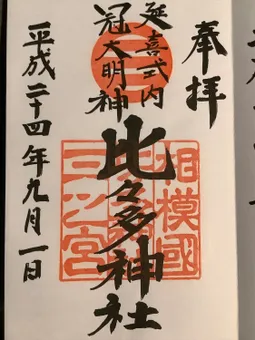 奉拝
延喜式内
冠大明神
比々多神社
相模國
三ノ宮
平成二十四年九月一日